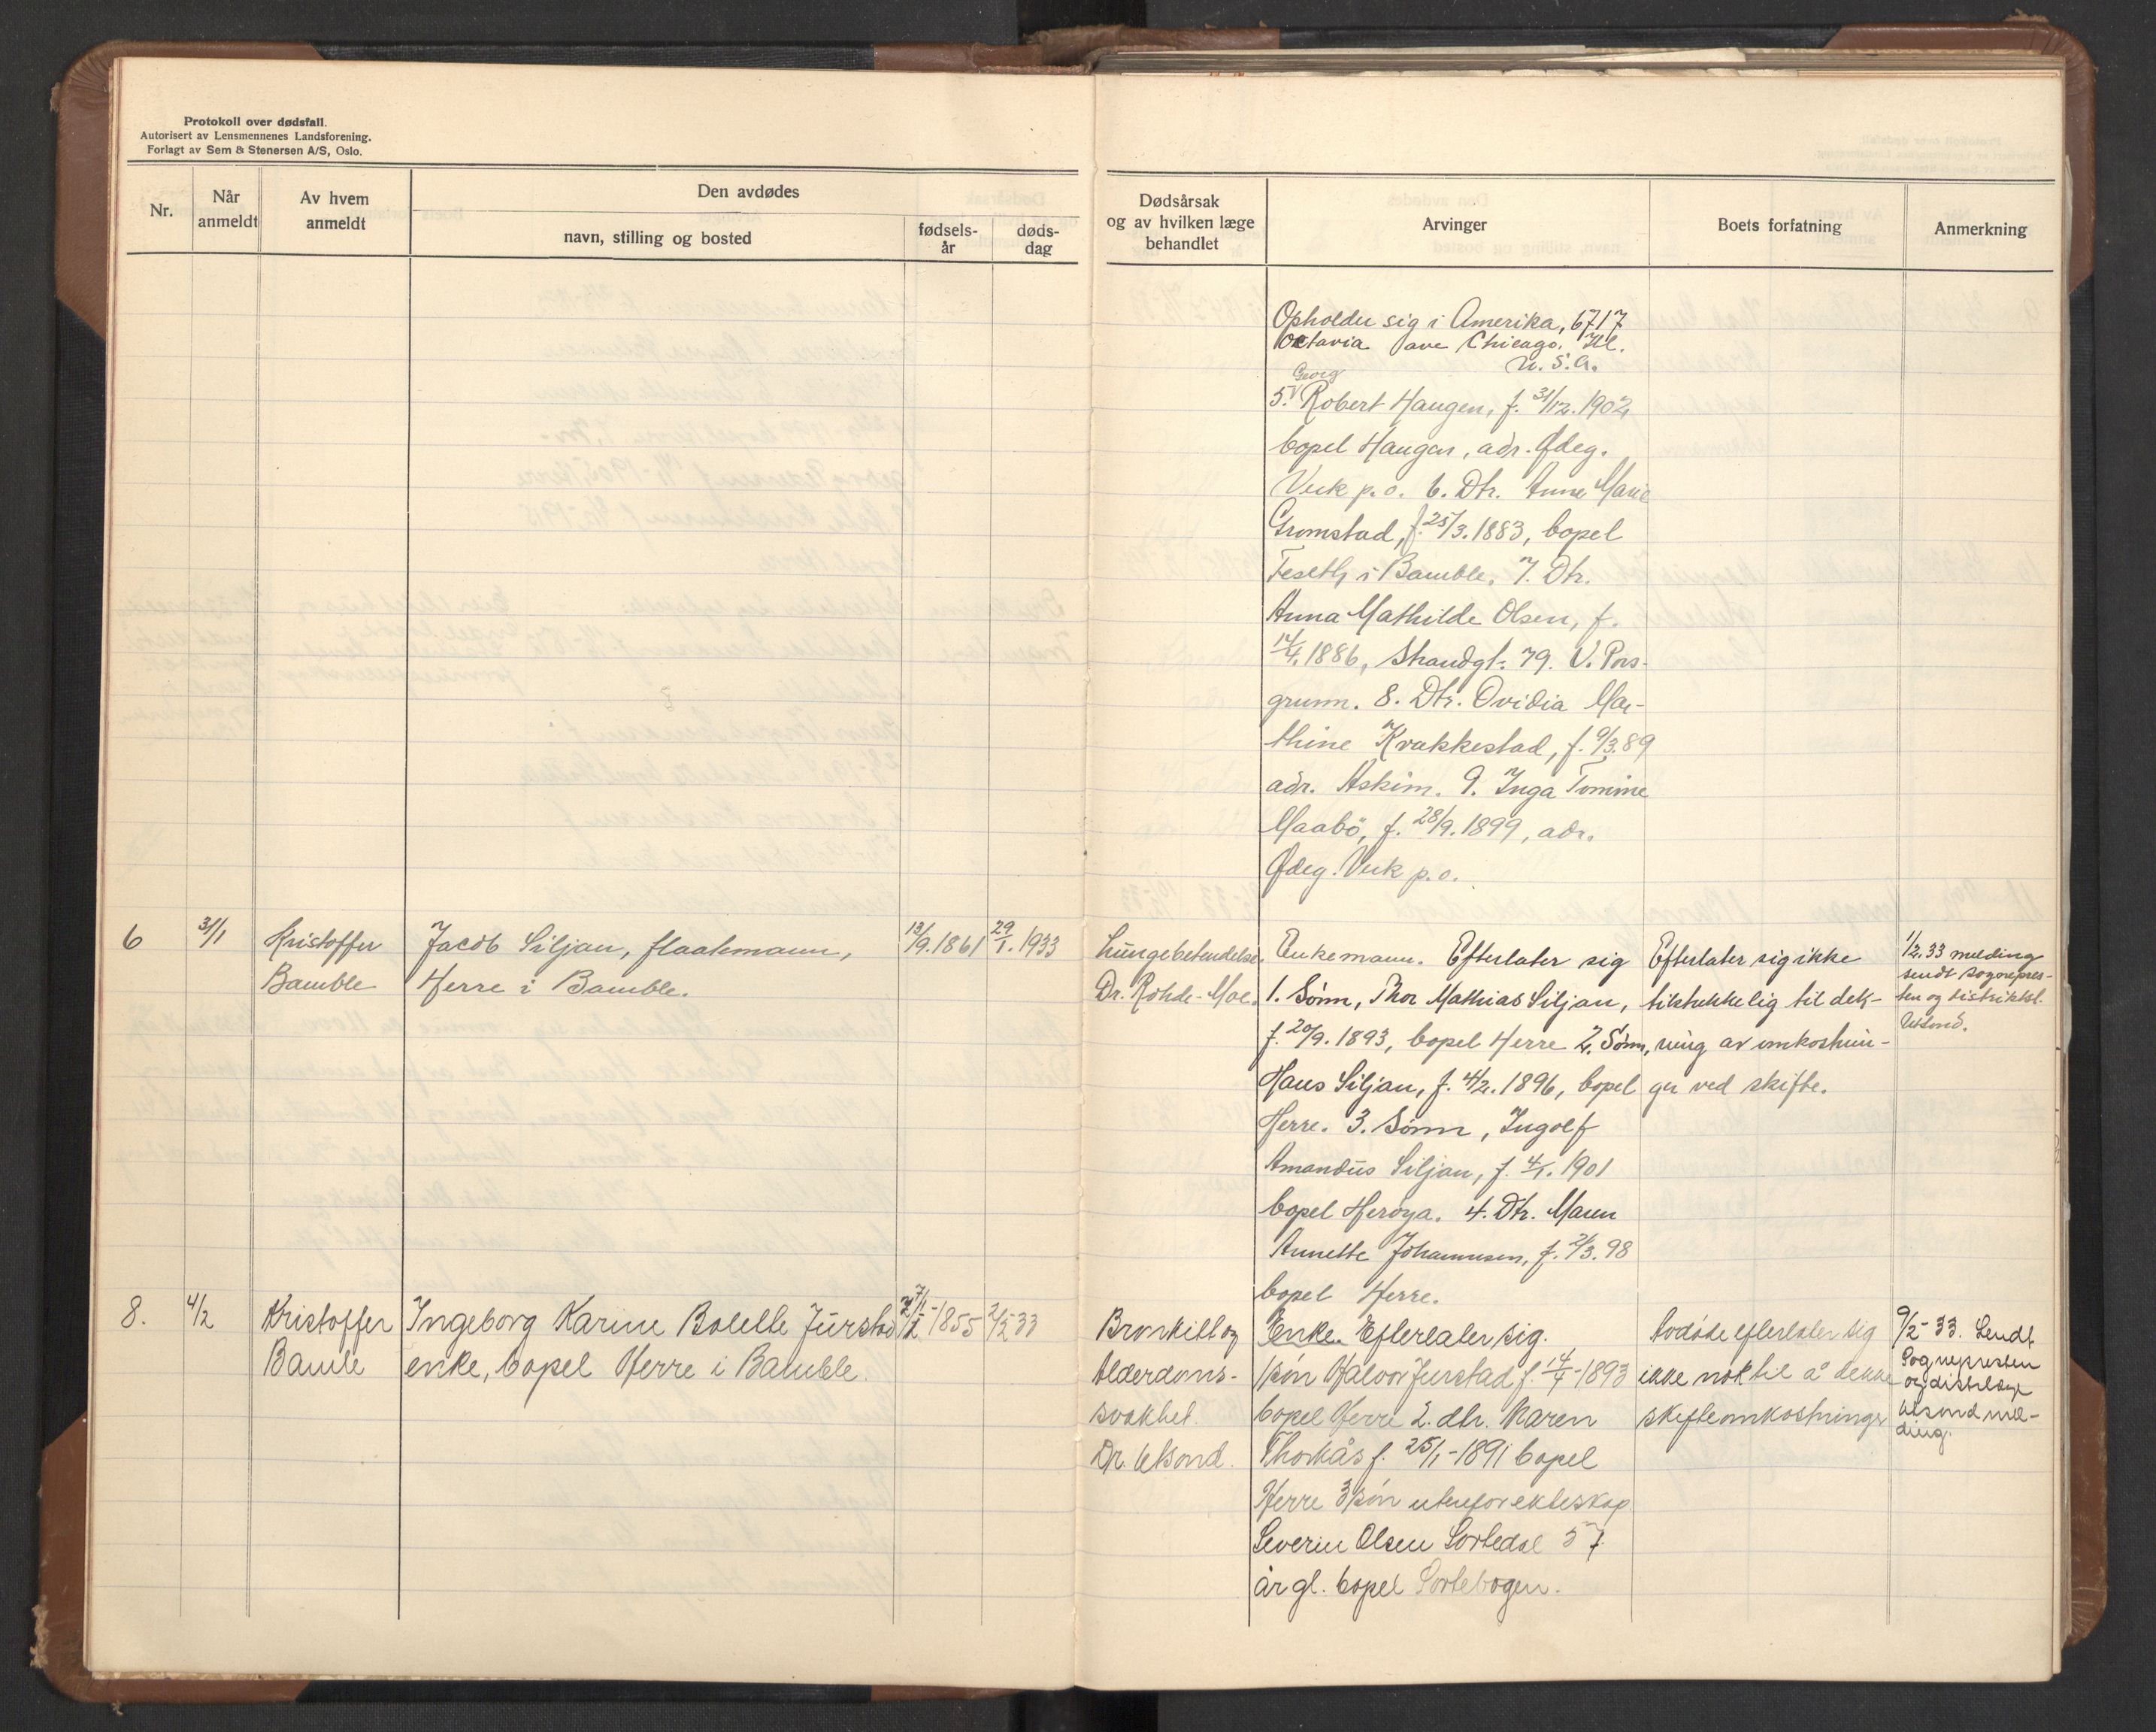 Protokoll over dødsfall.
Autorisert av Lensmennenes Landsforening.
Forlagt av Sem & Stenersen A/S, Oslo.
Nr.
Når
anmeldt
Av hvem
anmeldt
Den avdødes
navn, stilling og bosted
fødsels-
år
døds-
dag
Dødsårsak
og av hvilken læge
behandlet
Arvinger
Boets forfatning
Anmerkning
Opholder sig i Amerika, 6717
Octavia ave Chicago. Ill.
U. S. A.
Georg
5. Robert Haugen, f. 31/12. 1902,
bopel Haugen, adr. Ødeg.
Verk p. o. 6. Dtr. Anne Marie
Gromstad, f. 25/3. 1883, bopel
Feseth i Bamble. 7. Dtr.
Anna Mathilde Olsen, f.
14/4. 1886, Strandgt. 79. V. Pors-
grunn. 8. Dtr. Ovidia Mar-
thine Krakkestad, f. 9/3. 89
adr. Askim. 9. Inga Tomine
Maabö, f. 28/9. 1899, adr.
Ødeg. Verk p. o.
6
31/1
Kristoffer
Bamble
Jacob Siljan, flaatemann,
Herre i Bamble.
13/9. 1861
29/1. 1933
Lungebetendelse.
Dr. Rohde-Moe.
Enkemann. Efterlater sig
1. Sönn, Thor Mathias Siljan,
f. 20/9. 1893, bopel Herre 2. Sönn,
Hans Siljan, f. 4/2. 1896, bopel
Herre. 3. Sönn, Ingolf
Amandus Siljan, f. 4/1. 1901
bopel Heröya. 4. Dtr. Maren
Annette Johannesen, f. 2/3. 98
bopel Herre.
Efterlater sig ikke
tilstrekkelig til dek-
ning av omkostnin-
ger ved skifte.
1/2. 33 melding
sendt sognepres-
ten og distriktsl.
Utsond.
8.
4/2
Kristoffer
Bamle
Ingeborg Karine Bolette Jurstad
enke, bopel Herre i Bamble.
1855
2/2-33
Bronkitt og
Alderdoms-
svakhet.
Dr. Utsond.
Enke. Efterlater sig.
1 søn Halvor Jurstad f. 14/4-1893
bopel Herre 2. dtr. Karen
Thorkås f. 25/1-1891 bopel
Herre 3 søn utenfor ekteskap
Severin Olsen Sortedal 57
år gl. bopel Sortebogen.
Avdøde efterlater sig
ikke nok til å dekke
skifteomkostninger
9/2-33. Sendt
Sognepresten
og distrlæge
Utsond mel-
ding.